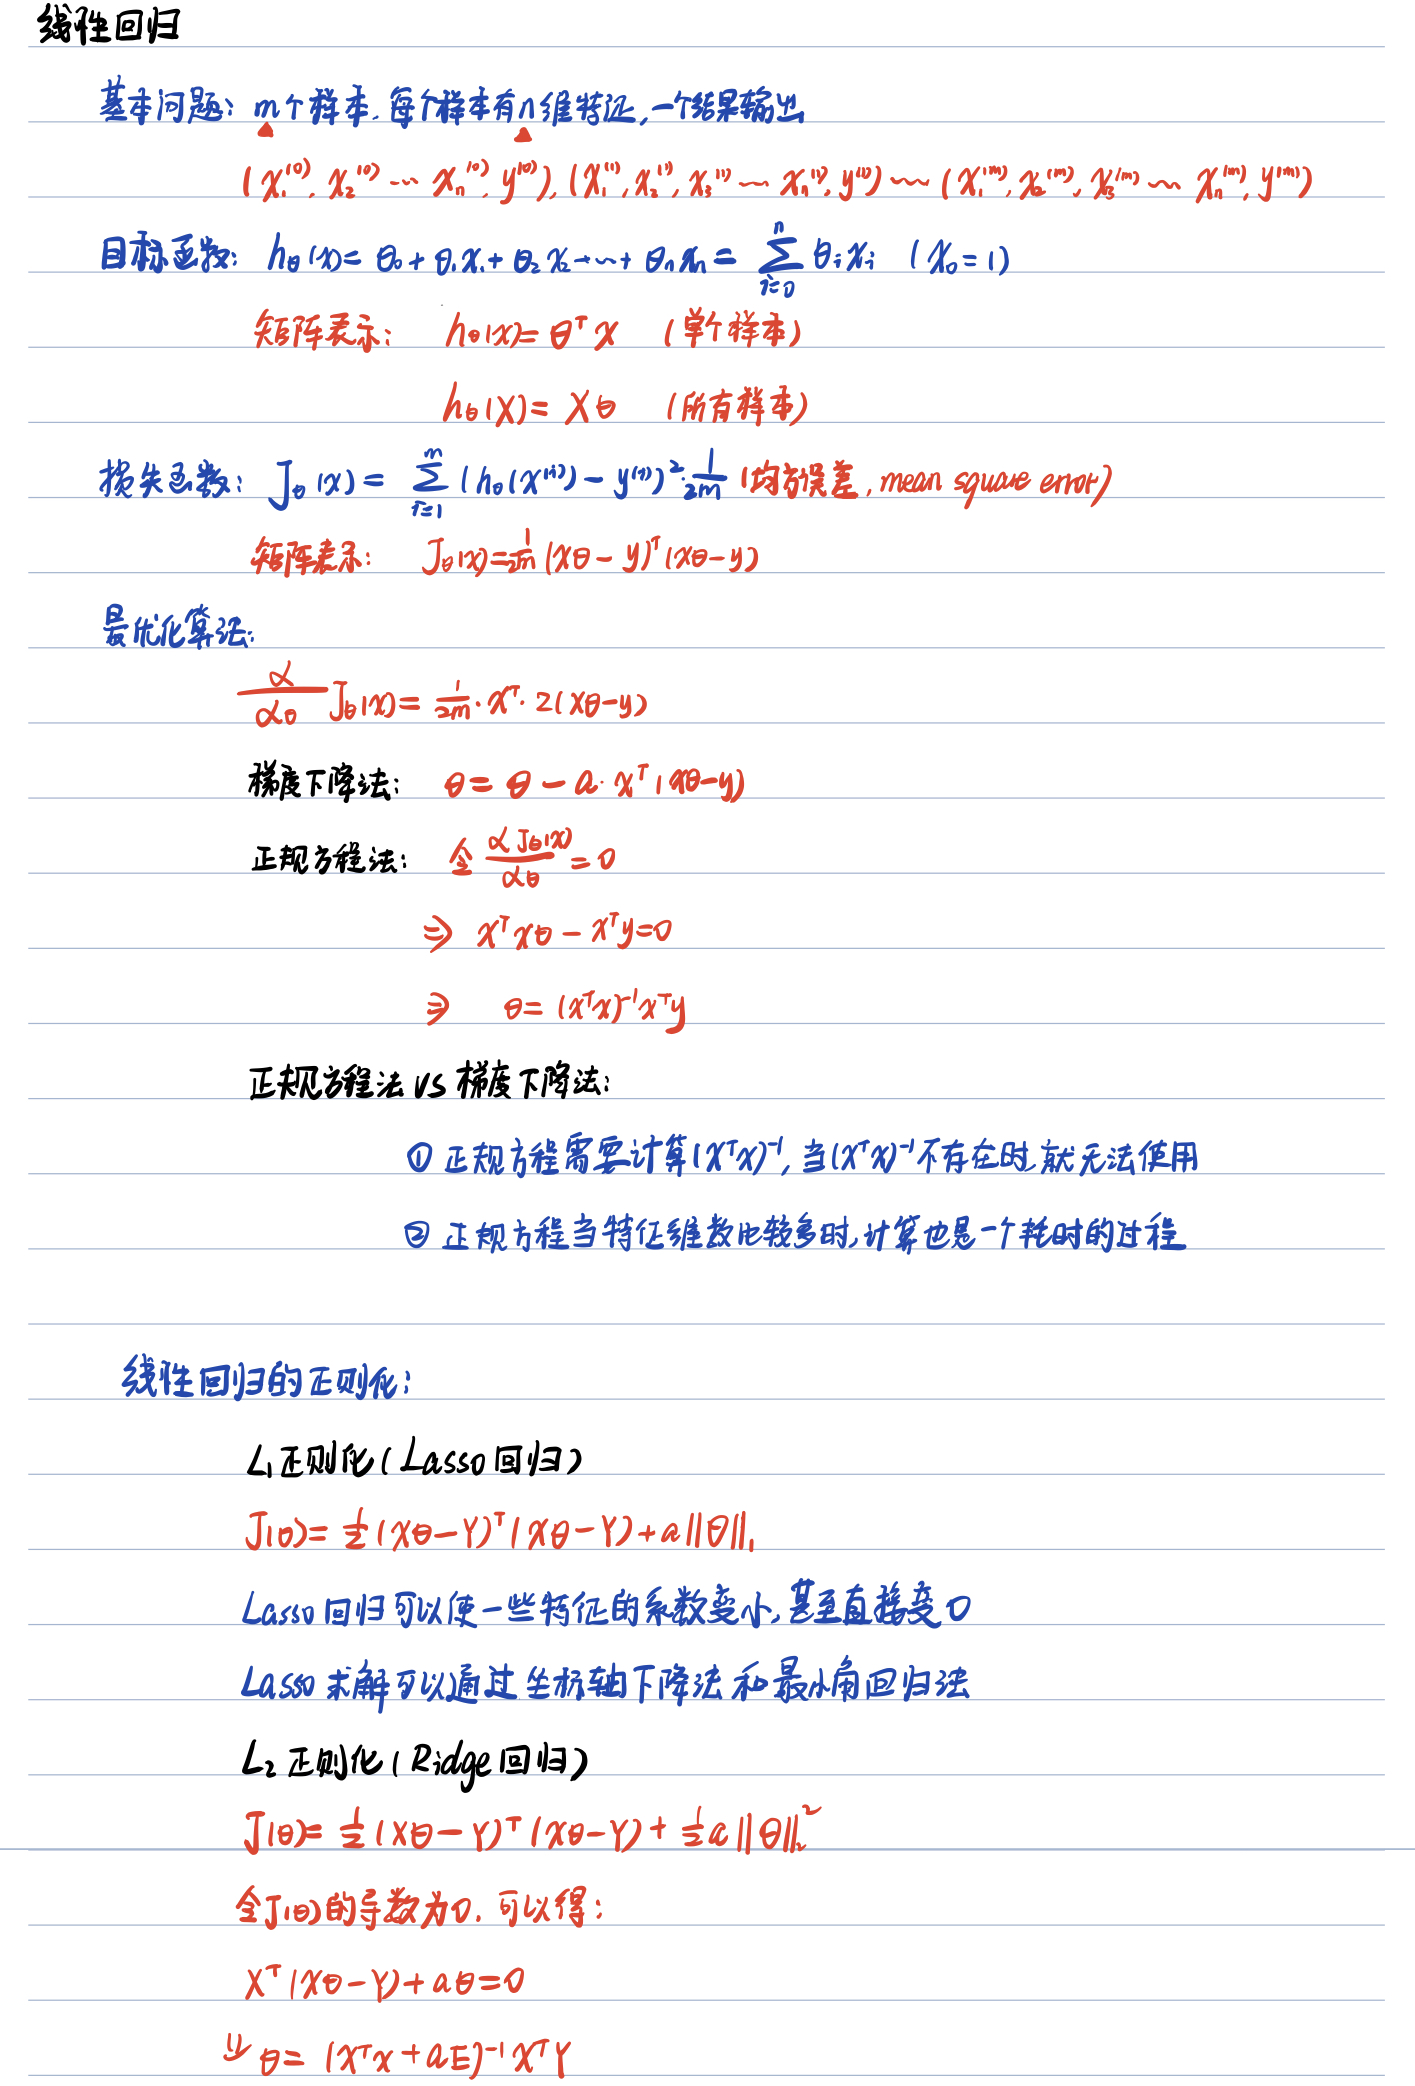 线性回归
基本问题: m个样本, 每个样本有n维特征, 一个结果输出
(x₁⁽⁰⁾, x₂⁽⁰⁾ ... xₙ⁽⁰⁾, y⁽⁰⁾), (x₁⁽¹⁾, x₂⁽¹⁾, x₃⁽¹⁾ ... xₙ⁽¹⁾, y⁽¹⁾) ... (x₁⁽ᵐ⁾, x₂⁽ᵐ⁾, x₃⁽ᵐ⁾ ... xₙ⁽ᵐ⁾, y⁽ᵐ⁾)
目标函数: h_θ(x) = θ₀ + θ₁x₁ + θ₂x₂ + ... + θₙxₙ = Σ_{i=0}^{n} θᵢxᵢ (x₀ = 1)
矩阵表示: h_θ(x) = θᵀx (单个样本)
h_θ(X) = Xθ (所有样本)
损失函数: J_θ(x) = Σ_{i=1}^{m} (h_θ(x⁽ⁱ⁾) - y⁽ⁱ⁾)² · 1/2m (均方误差, mean square error)
矩阵表示: J_θ(x) = 1/2m (xθ - y)ᵀ(xθ - y)
最优化算法:
α/αθ J_θ(x) = 1/2m · xᵀ · 2(xθ - y)
梯度下降法: θ = θ - a · xᵀ(xθ - y)
正规方程法: 令 αJ_θ(x)/αθ = 0
⇒ xᵀxθ - xᵀy = 0
⇒ θ = (xᵀx)⁻¹xᵀy
正规方程法 VS 梯度下降法:
① 正规方程需要计算(xᵀx)⁻¹, 当(xᵀx)⁻¹不存在时, 就无法使用
② 正规方程当特征维数比较多时, 计算也是一个耗时的过程
线性回归的正则化:
L₁正则化(Lasso回归)
J(θ) = 1/2 (xθ - Y)ᵀ(xθ - Y) + a||θ||₁
Lasso回归可以使一些特征的系数变小, 甚至直接变0
Lasso求解可以通过坐标轴下降法和最小角回归法
L₂正则化(Ridge回归)
J(θ) = 1/2 (xθ - Y)ᵀ(xθ - Y) + 1/2 a||θ||₂²
令J(θ)的导数为0, 可以得:
Xᵀ(xθ - Y) + aθ = 0
⇓ θ = (xᵀx + aE)⁻¹XᵀY